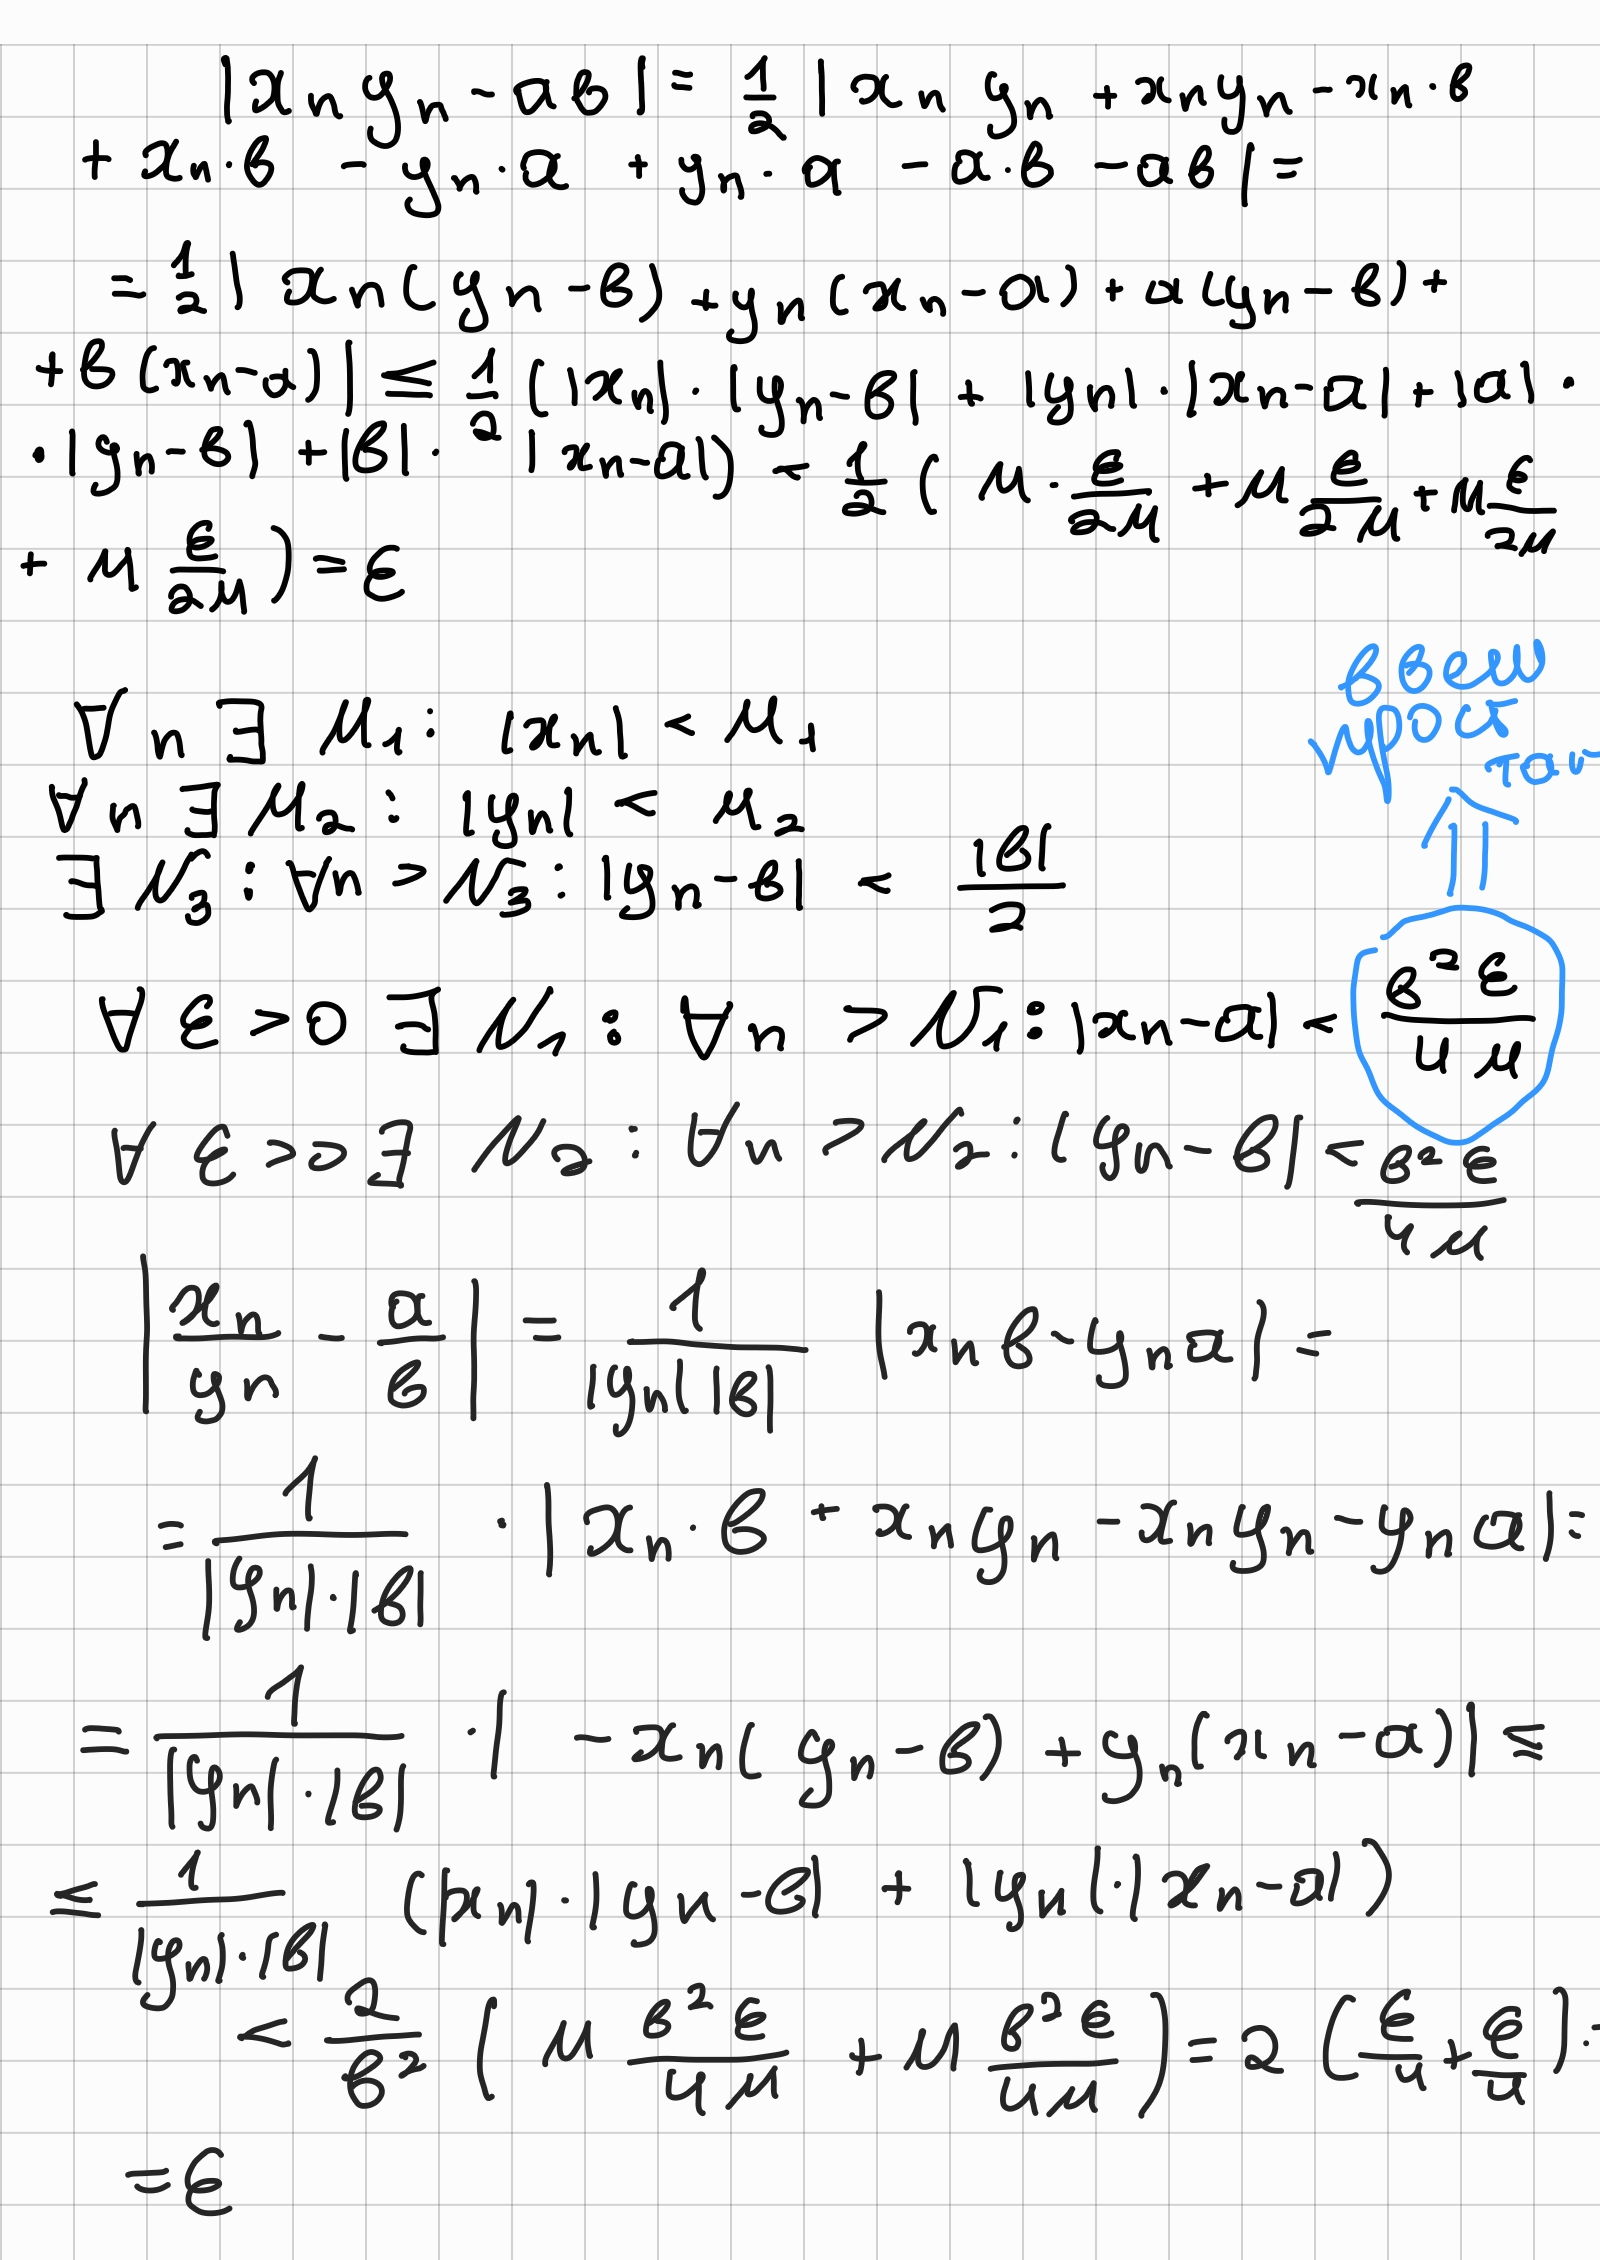 |xₙyₙ - aв| = 1/2 |xₙyₙ + xₙyₙ - xₙ·в
+ xₙ·в - yₙ·a + yₙ·a - a·в - aв| =
= 1/2 | xₙ(yₙ - в) + yₙ(xₙ - a) + a(yₙ - в) +
+ в(xₙ - a)| ≤ 1/2 (|xₙ|·|yₙ - в| + |yₙ|·|xₙ - a| + |a|·
·|yₙ - в| + |в|·|xₙ - a|) < 1/2 (M·ε/2M + M ε/2M + M ε/2M
+ M ε/2M) = ε
∀n ∃ M₁: |xₙ| < M₁
∀n ∃ M₂: |yₙ| < M₂
∃ N₃: ∀n > N₃: |yₙ - в| < |в|/2
∀ε > 0 ∃ N₁: ∀n > N₁: |xₙ - a| < в²ε/4M
∀ε > 0 ∃ N₂: ∀n > N₂: |yₙ - в| < в²ε/4M
|xₙ/yₙ - a/в| = 1/|yₙ||в| |xₙв - yₙa| =
= 1/|yₙ|·|в| · |xₙ·в + xₙyₙ - xₙyₙ - yₙa| =
= 1/|yₙ|·|в| · | - xₙ(yₙ - в) + yₙ(xₙ - a)| ≤
≤ 1/|yₙ|·|в| (|xₙ|·|yₙ - в| + |yₙ|·|xₙ - a|)
< 2/в² (M в²ε/4M + M в²ε/4M) = 2 (ε/4 + ε/4) =
= ε